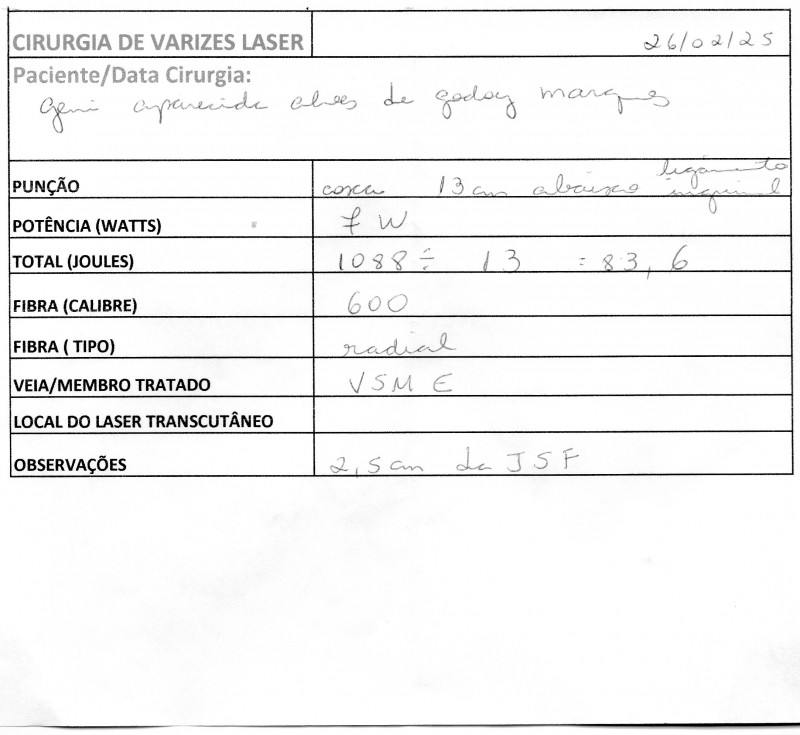 CIRURGIA DE VARIZES LASER 26/02/25
Paciente/Data Cirurgia:
Geni aparecida alves de godoy marques
PUNÇÃO coxa 13 cm abaixo ligamento inguinal
POTÊNCIA (WATTS) 7 W
TOTAL (JOULES) 1088 ÷ 13 = 83,6
FIBRA (CALIBRE) 600
FIBRA ( TIPO) radial
VEIA/MEMBRO TRATADO VSM E
LOCAL DO LASER TRANSCUTÂNEO
OBSERVAÇÕES 2,5 cm da JSF